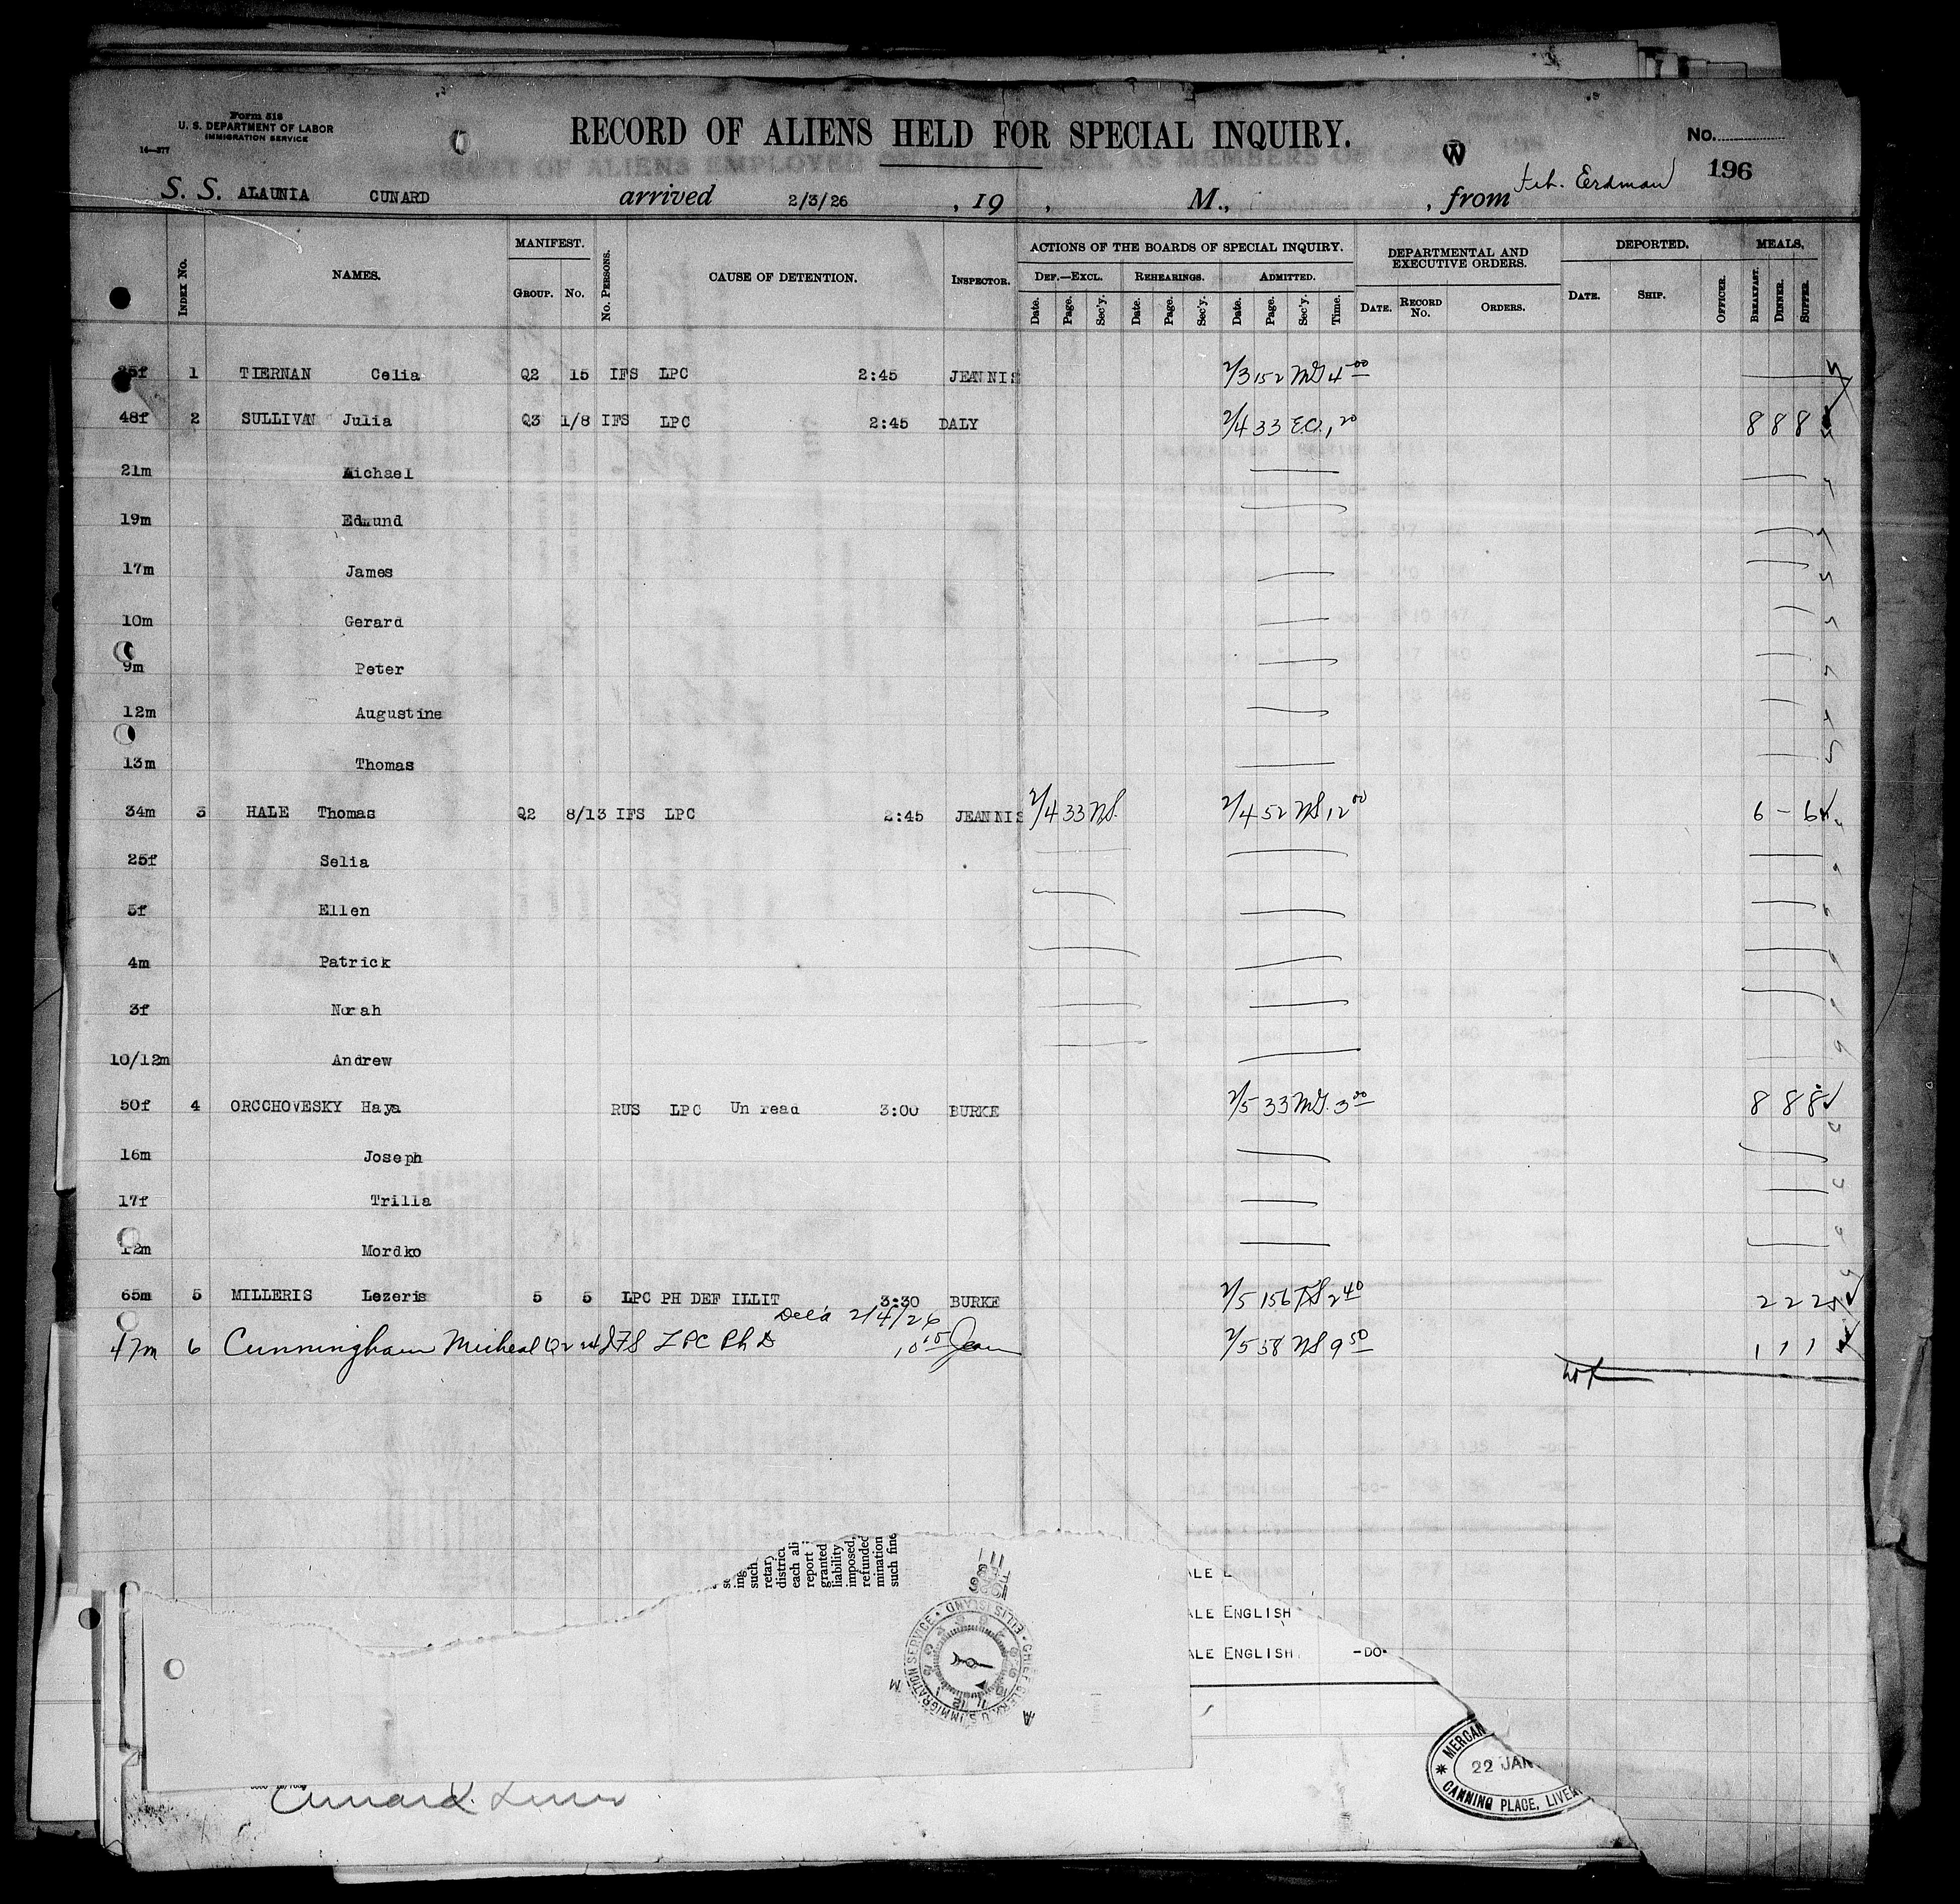 Form 518
U. S. DEPARTMENT OF LABOR
IMMIGRATION SERVICE
14—377
RECORD OF ALIENS HELD FOR SPECIAL INQUIRY.
No.
196
S. S. ALAUNIA CUNARD arrived 2/3/26 , 19 , M., , from Erdman
INDEX No. NAMES. MANIFEST. GROUP. No. No. PERSONS. CAUSE OF DETENTION. INSPECTOR. ACTIONS OF THE BOARDS OF SPECIAL INQUIRY. DEPARTMENTAL AND EXECUTIVE ORDERS. DEPORTED. MEALS.
DEF.—EXCL. REHEARINGS. ADMITTED.
Date. Page. Sec'y. Date. Page. Sec'y. Date. Page. Sec'y. Time. DATE. RECORD No. ORDERS. DATE. SHIP. OFFICER. BREAKFAST. DINNER. SUPPER.
1 TIERNAN Celia Q2 15 IFS LPC 2:45 JEANNIS 2/3 152 MG 4 00
48f 2 SULLIVAN Julia Q3 1/8 IFS LPC 2:45 DALY 2/4 33 E.O. 1 20 8 8 8
21m Michael
19m Edmund
17m James
10m Gerard
9m Peter
12m Augustine
13m Thomas
34m 3 HALE Thomas Q2 8/13 IFS LPC 2:45 JEANNIS 2/4 33 NS. 2/4 52 NS 12 00 6 - 6
25f Selia
5f Ellen
4m Patrick
3f Norah
10/12m Andrew
50f 4 ORCCHOVESKY Haya RUS LPC Un read 3:00 BURKE 2/5 33 MG. 3 00 8 8 8
16m Joseph
17f Trilla
12m Mordko
65m 5 MILLERIS Lezeris 5 5 LPC PH DEF ILLIT 3:30 BURKE 2/5 156 2 40 2 2 2
2/4/26
47m 6 Cunningham Micheal Q2 IFS LPC Ph D 10 15 Jean 2/5 58 NS 9 50 1 1 1
such
retary
district
each ali
report
granted
liability
imposed,
refunded
mination
such fine
CHIEF CLERK U.S. IMMIGRATION SERVICE • ELLIS ISLAND •
ALE E
ALE ENGLISH
ALE ENGLISH -DO-
MERCAN
22 JAN
CANNING PLACE, LIVER
Cunard Line